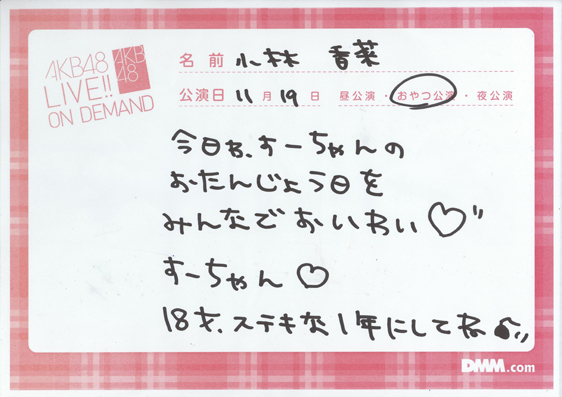 AKB48
LIVE!!
ON DEMAND
AKB
48
名前 小林 香菜
公演日 11月19日 昼公演・おやつ公演・夜公演
今日は、すーちゃんの
おたんじょう日を
みんなでおいわい♡"
すーちゃん♡
18才、ステキな1年にしてね♪
DMM.com